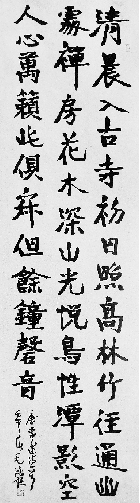 清晨入古寺初日照高林竹徑通幽
處禪房花木深山光悅鳥性潭影空
人心萬籟此俱寂但餘鐘磬音